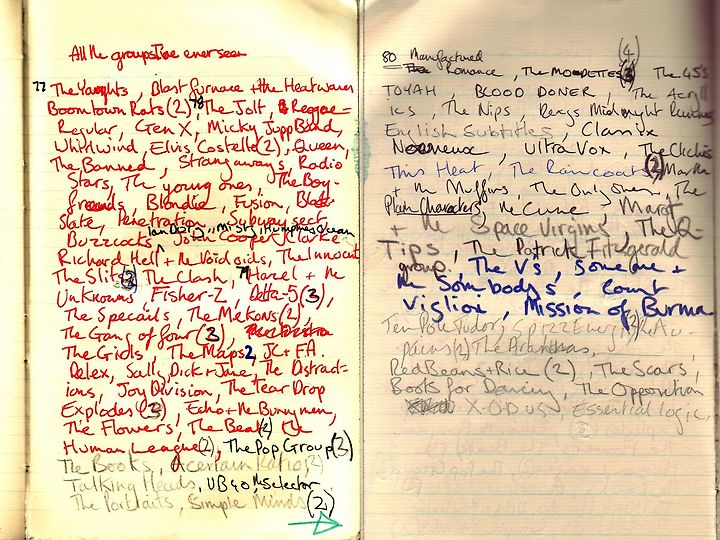 All the groups I've ever seen
77 The Yachts, Blast Furnace + the Heatwaves
Boomtown Rats (2) 78 The Jolt, Reggae
Regular, Gen X, Micky Jupp Band,
Whirlwind, Elvis Costello (2), Queen,
The Banned, Strangeways, Radio
Stars, The young ones, The Boy-
friends, Blondie, Fusion, Black
Slate, Penetration, Subway sect,
Ian Dury, Misty, Humphrey Ocean
Buzzcocks, John Cooper Clarke
Richard Hell + the Void oids, The Innocent
The Slits, The Clash, 79 Hazel + the
Unknowns, Fisher-Z, Delta-5 (3),
The Specails, The Mekons (2),
The Gang of four (3)
The Grids, The Maps 2, JC + F.A.
Delex, Sally, Dick + Jane, The Distract-
ions, Joy Division, The Tear Drop
Explodes (3), Echo + the Bunnymen,
The Flowers, The Beat (2) the
Human League (2), The Pop Group (3)
The Books, A certain Ratio (2)
Talking Heads, UB40, The Selector
The Portraits, Simple Minds (2)
80 Manufactured (4)
Romance, The MO-DETTES The 45s
TOYAH, BLOOD DONER, The Acryll
ics, The Nips, Dexys Midnight Runners
English Subtitles, Classix
Nouveux, Ultra Vox, The Cliches
This Heat, The Raincoats (2), Martha
+ the Muffins, The Only Ones, The
Plain Characters, the Cure, Margot
+ the Space Virgins, The Q-
Tips, The Patrick Fitzgerald
group, The Vs, Someone +
the Sombodys, Count
Viglion, Mission of Burma
Ten Pole Tudor, Spizz Energi (2), The Au-
pairs (2) The Piranhas,
Red Beans + Rice (2), The Scars,
Books for Dancing, The Opposition
X-O-DUS, Essential logic,